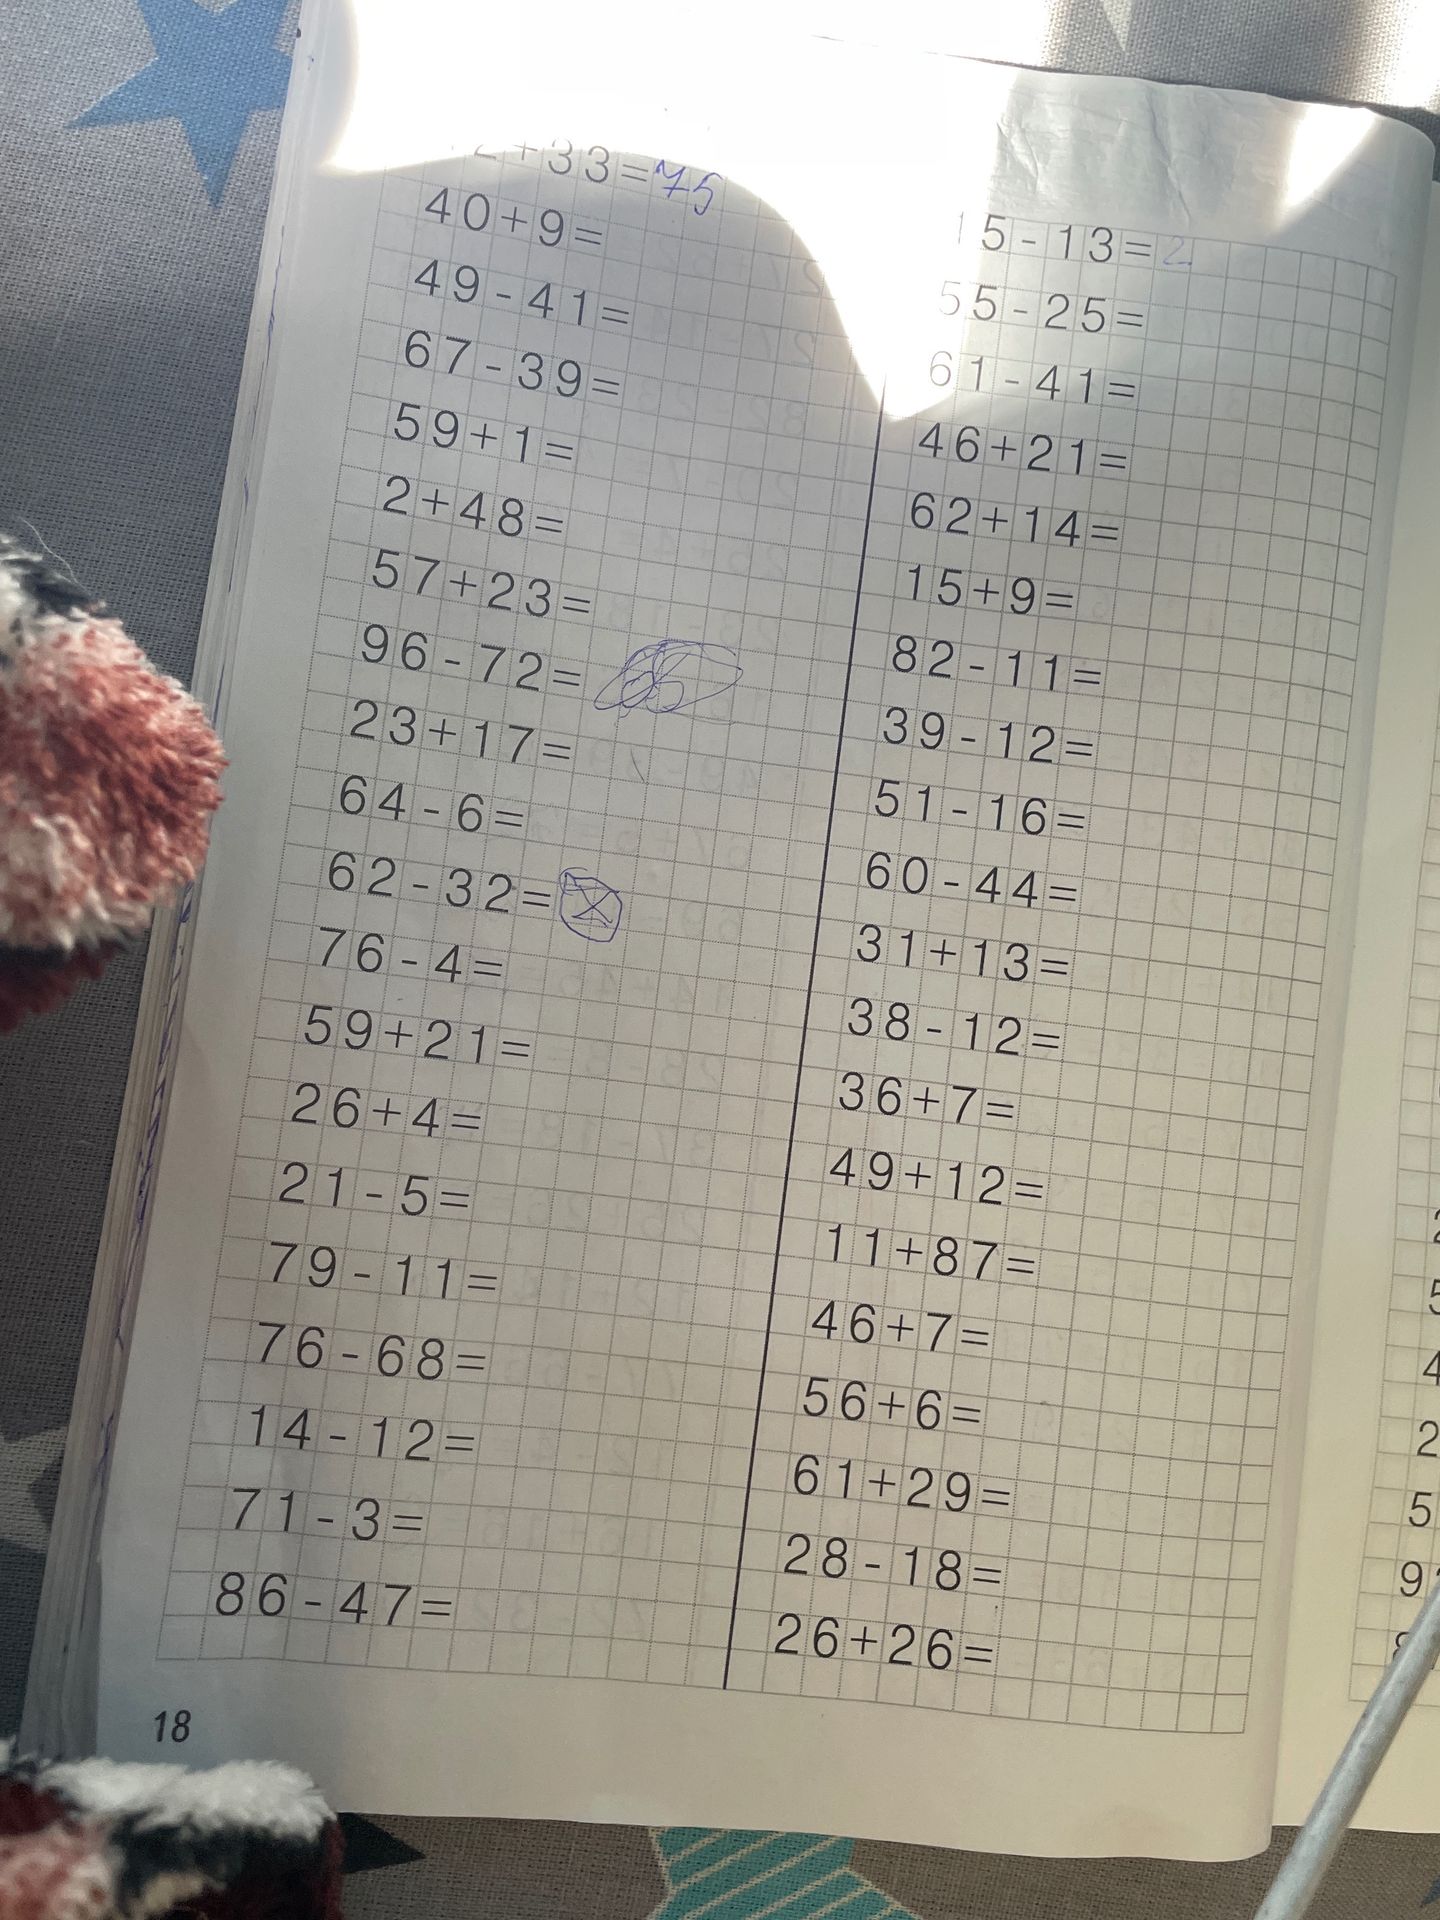 2+33=75
40+9=
49-41=
67-39=
59+1=
2+48=
57+23=
96-72=
23+17=
64-6=
62-32=
76-4=
59+21=
26+4=
21-5=
79-11=
76-68=
14-12=
71-3=
86-47=
15-13=2
55-25=
61-41=
46+21=
62+14=
15+9=
82-11=
39-12=
51-16=
60-44=
31+13=
38-12=
36+7=
49+12=
11+87=
46+7=
56+6=
61+29=
28-18=
26+26=
18
2
5
4
2
5
9